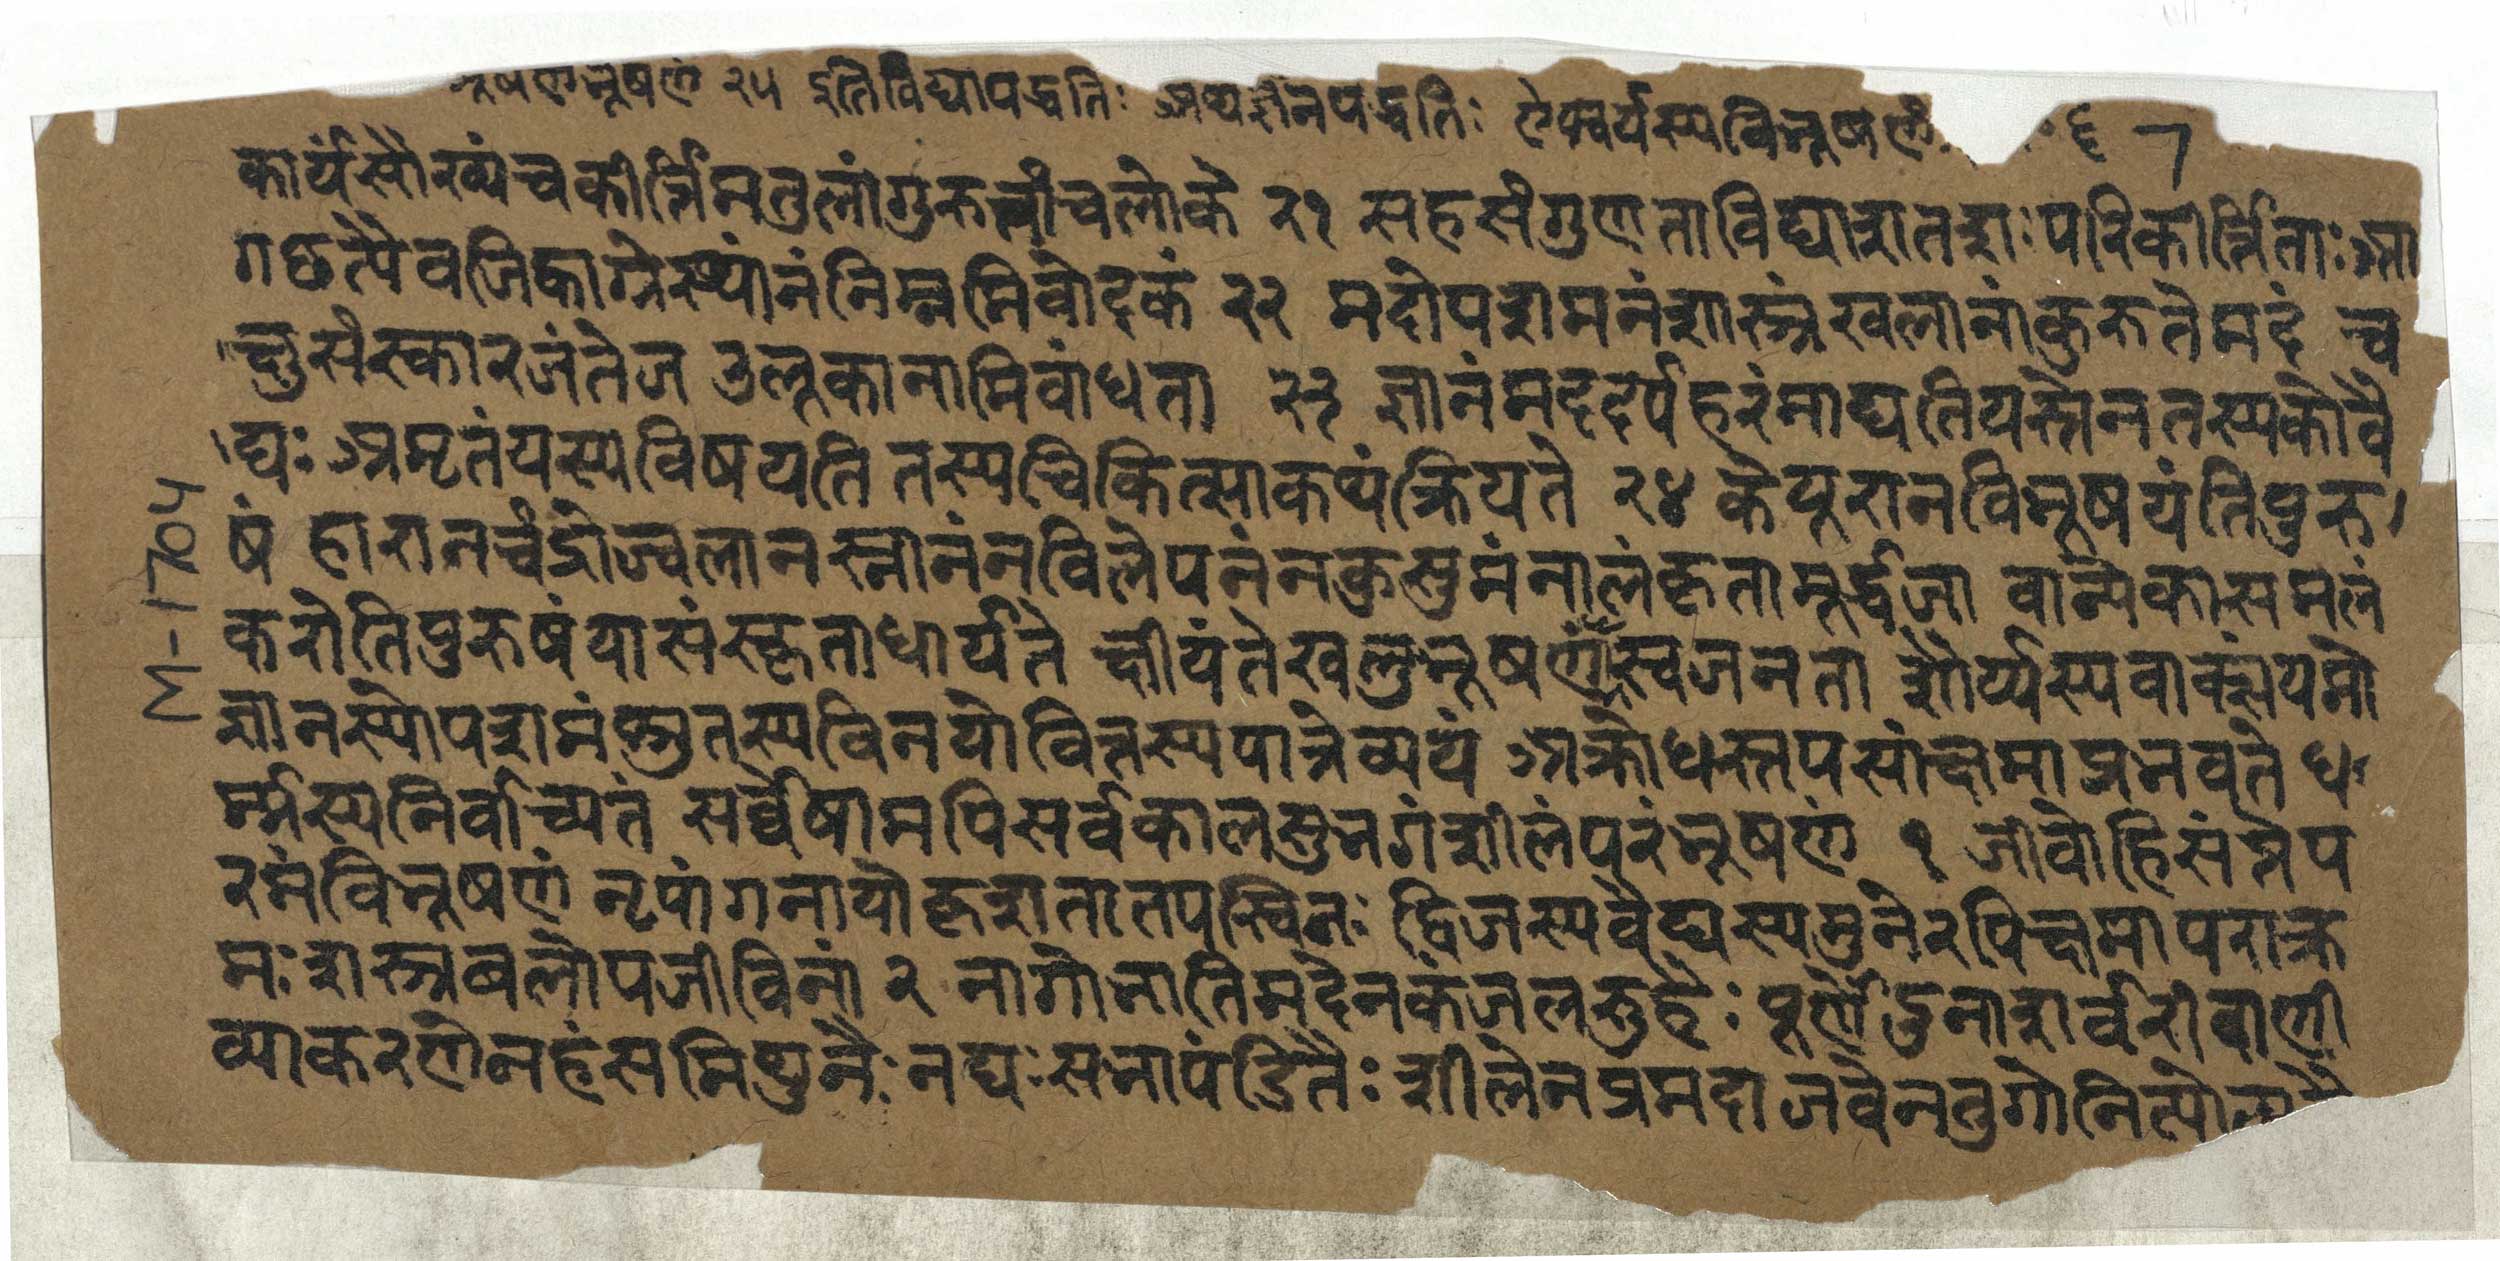 भूषणभूषणं २५ इतिविद्यापद्धतिः अथशीनपद्धतिः ऐश्वर्यस्यविभूषणं ६ 7
कार्यसौख्यंचकीर्त्तिमतुलांगुरुत्वांचलोके २१ सहसंगुणताविद्याशतशः परिकीर्त्तिताः आ
गछत्येवजिह्वाग्रेस्थानंनिम्नमिवोदकं २२ मदोपशमनंशास्त्रंखलानांकुरुतेमदं च
क्षुसंस्कारजंतेज उलूकानामिवांधता २३ ज्ञानंमददर्पहरंमाद्यतियस्तेनतस्यकोवै
द्यः अमृतंयस्यविषयति तस्यचिकित्साकथंक्रियते २४ केयूरानविभूषयंतिपुरु
षं हारानचंद्रोज्वलानस्नानंनविलेपनंनकुसुमंनालंकृतामूर्द्धजा वान्येकासमलं
करोतिपुरुषंयासंस्कृताधार्यते क्षीयंतेखलुभूषणं स्वजनता शौर्य्यस्यवाक्संयमो
ज्ञानस्योपशमंश्रुतस्यविनयोवित्तस्यपात्रेव्ययं अक्रोधस्तपसांक्षमाप्रभवते ध
र्म्मस्यनिर्वाच्यतं सर्व्वेषामपिसर्वकालसुभगंशीलंपरंभूषणं १ जीवोहिसंज्ञेप
रमंविभूषणं नृपांगनायोकृशतातपस्विनः द्विजस्यवैद्यस्यमुनेरपिक्षमा पराक्र
मः शस्त्रबलोपजीविनां २ नागोभातिमदेनकंजलरुहैः पूर्णेंदुनाशर्वरीवाणी
व्याकरणेनहंसमिथुनैः नद्यः सभापंडितैः शीलेनप्रमदाजवेनतुगोनित्यो
M-1704